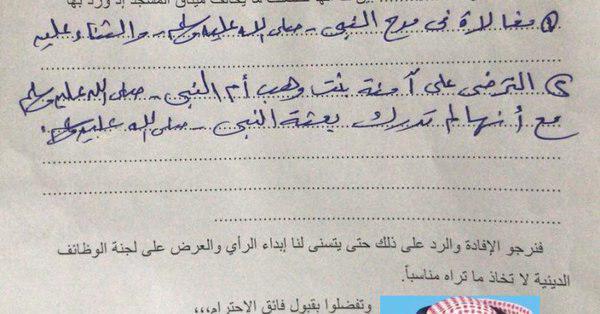 ما يخالف ميثاق المسجد إذ ورد بها
① مغالاة فى مدح النبى - صلى الله عليه وسلم - والثناء عليه
② الترضى على آمنة بنت وهب أم النبى - صلى الله عليه وسلم
مع أنها لم تدرك بعثة النبى - صلى الله عليه وسلم.
فنرجو الإفادة والرد على ذلك حتى يتسنى لنا إبداء الرأي والعرض على لجنة الوظائف
الدينية لا تخاذ ما تراه مناسباً.
وتفضلوا بقبول فائق الاحترام،،،